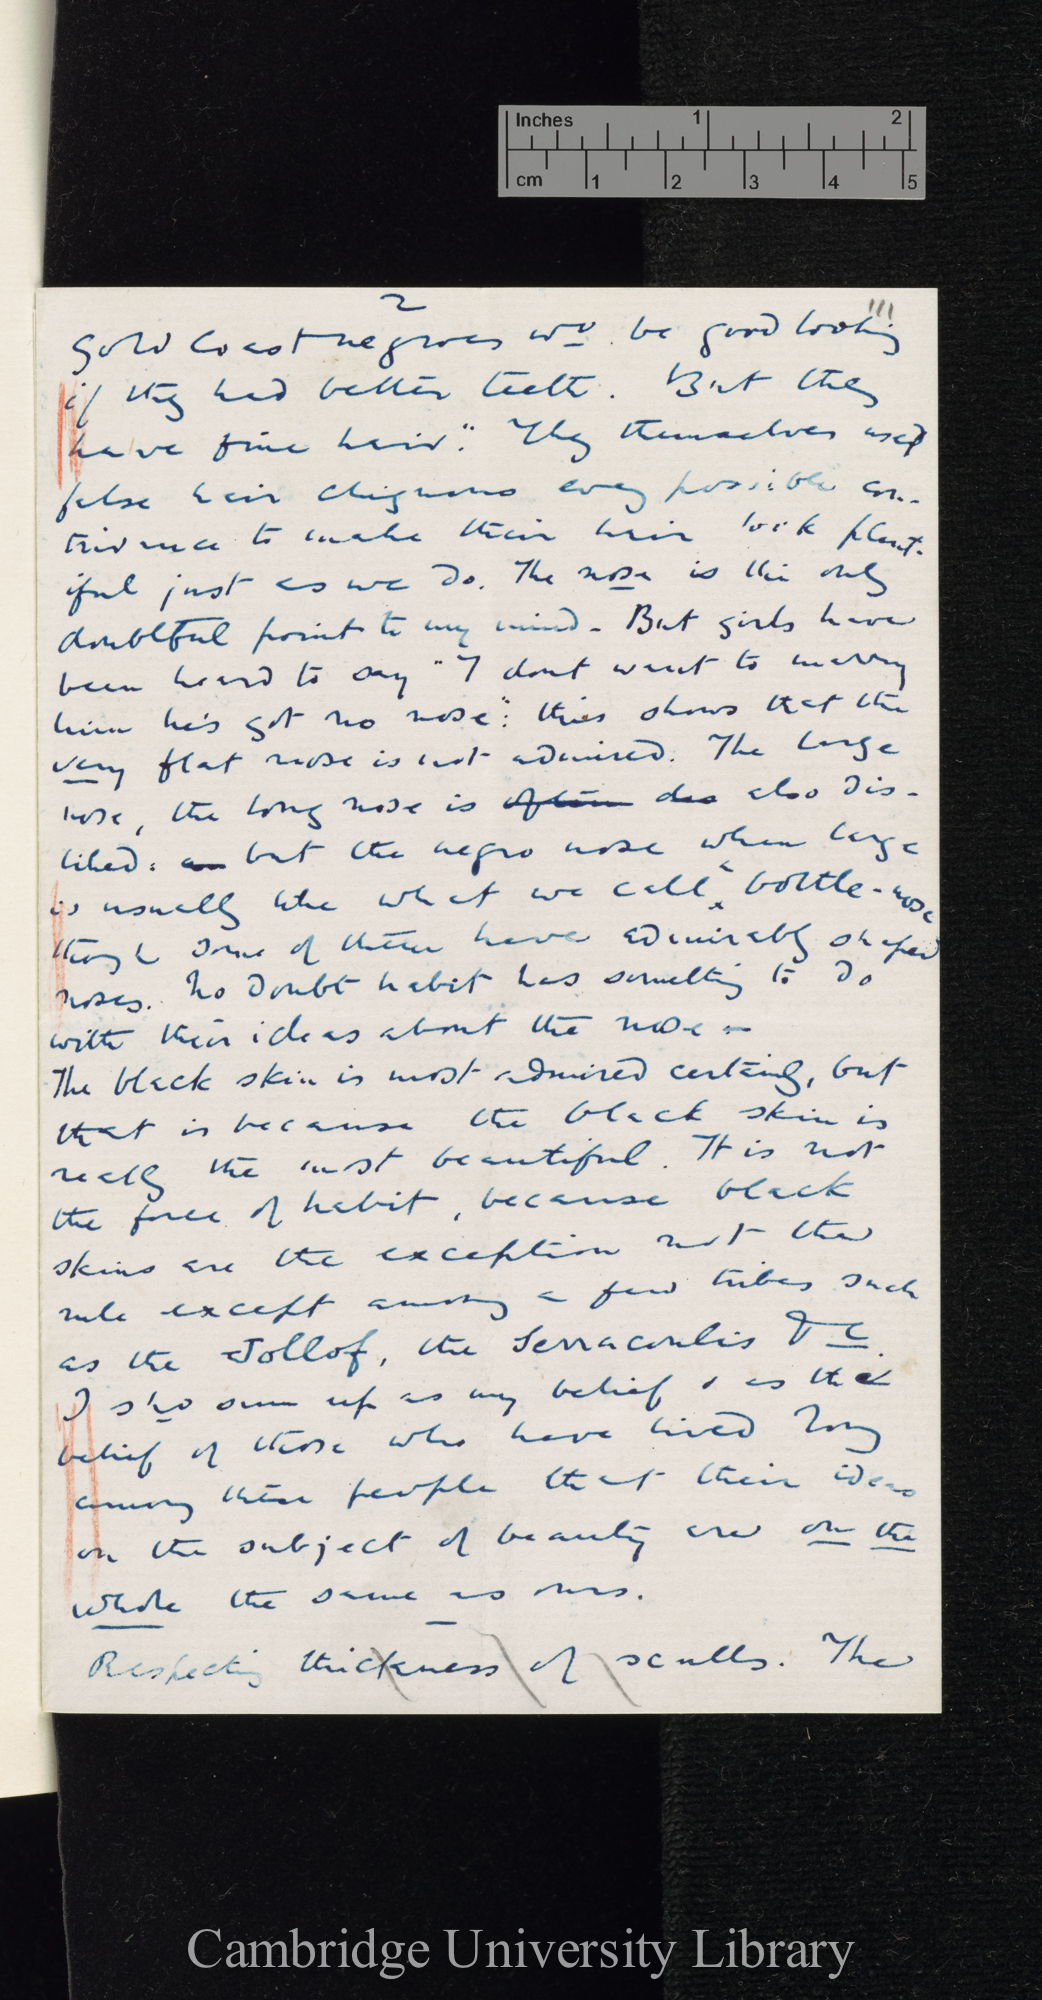 Inches 1 2
cm 1 2 3 4 5
2
111
Gold Coast negroes wd. be good looking
if they had better teeth. But they
have fine hair": They themselves used
false hair chignons every possible con-
trivance to make their hair look plent-
iful just as we do. The nose is the only
doubtful point to my mind - But girls have
been heard to say "I dont want to marry
him he's got no nose": this shows that the
very flat nose is not admired. The large
nose, the long nose is often also dis-
liked: but the negro nose when large
is usually like what we call bottle-nose
though some of them have admirably shaped
noses. No doubt habit has something to do
with their ideas about the nose -
The black skin is most admired certainly, but
that is because the black skin is
really the most beautiful. It is not
the force of habit, because black
skins are the exception not the
rule except among a few tribes such
as the Jollof, the Serracoulis &c.
I shd sum up as my belief & as the
belief of those who have lived long
among these people that their ideas
on the subject of beauty are on the
whole the same as ours.
Respecting thickness of sculls. The
Cambridge University Library